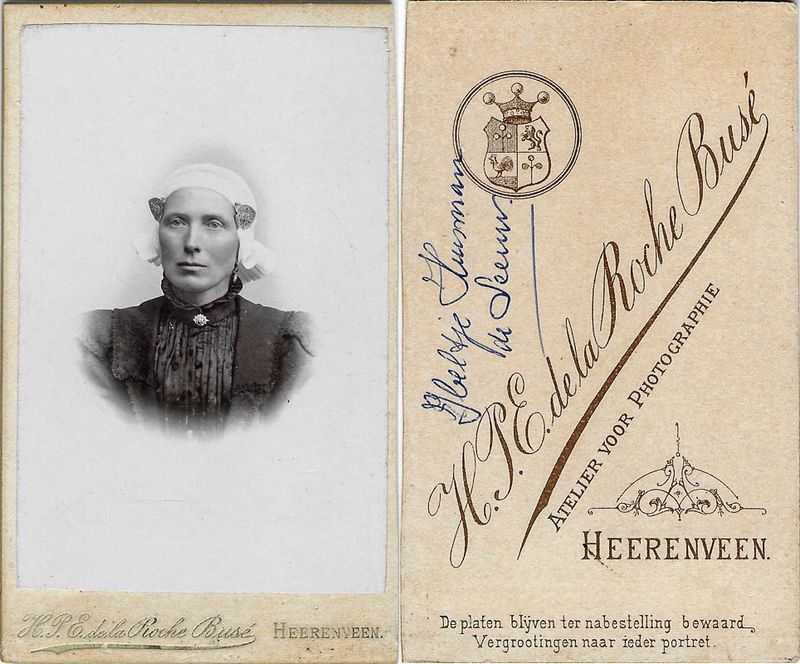 H. P. E. de la Roche Busé HEERENVEEN.
H. P. E. de la Roche Busé
ATELIER VOOR PHOTOGRAPHIE
HEERENVEEN.
De platen blijven ter nabestelling bewaard,
Vergrootingen naar ieder portret.
IJbeltje Huisman